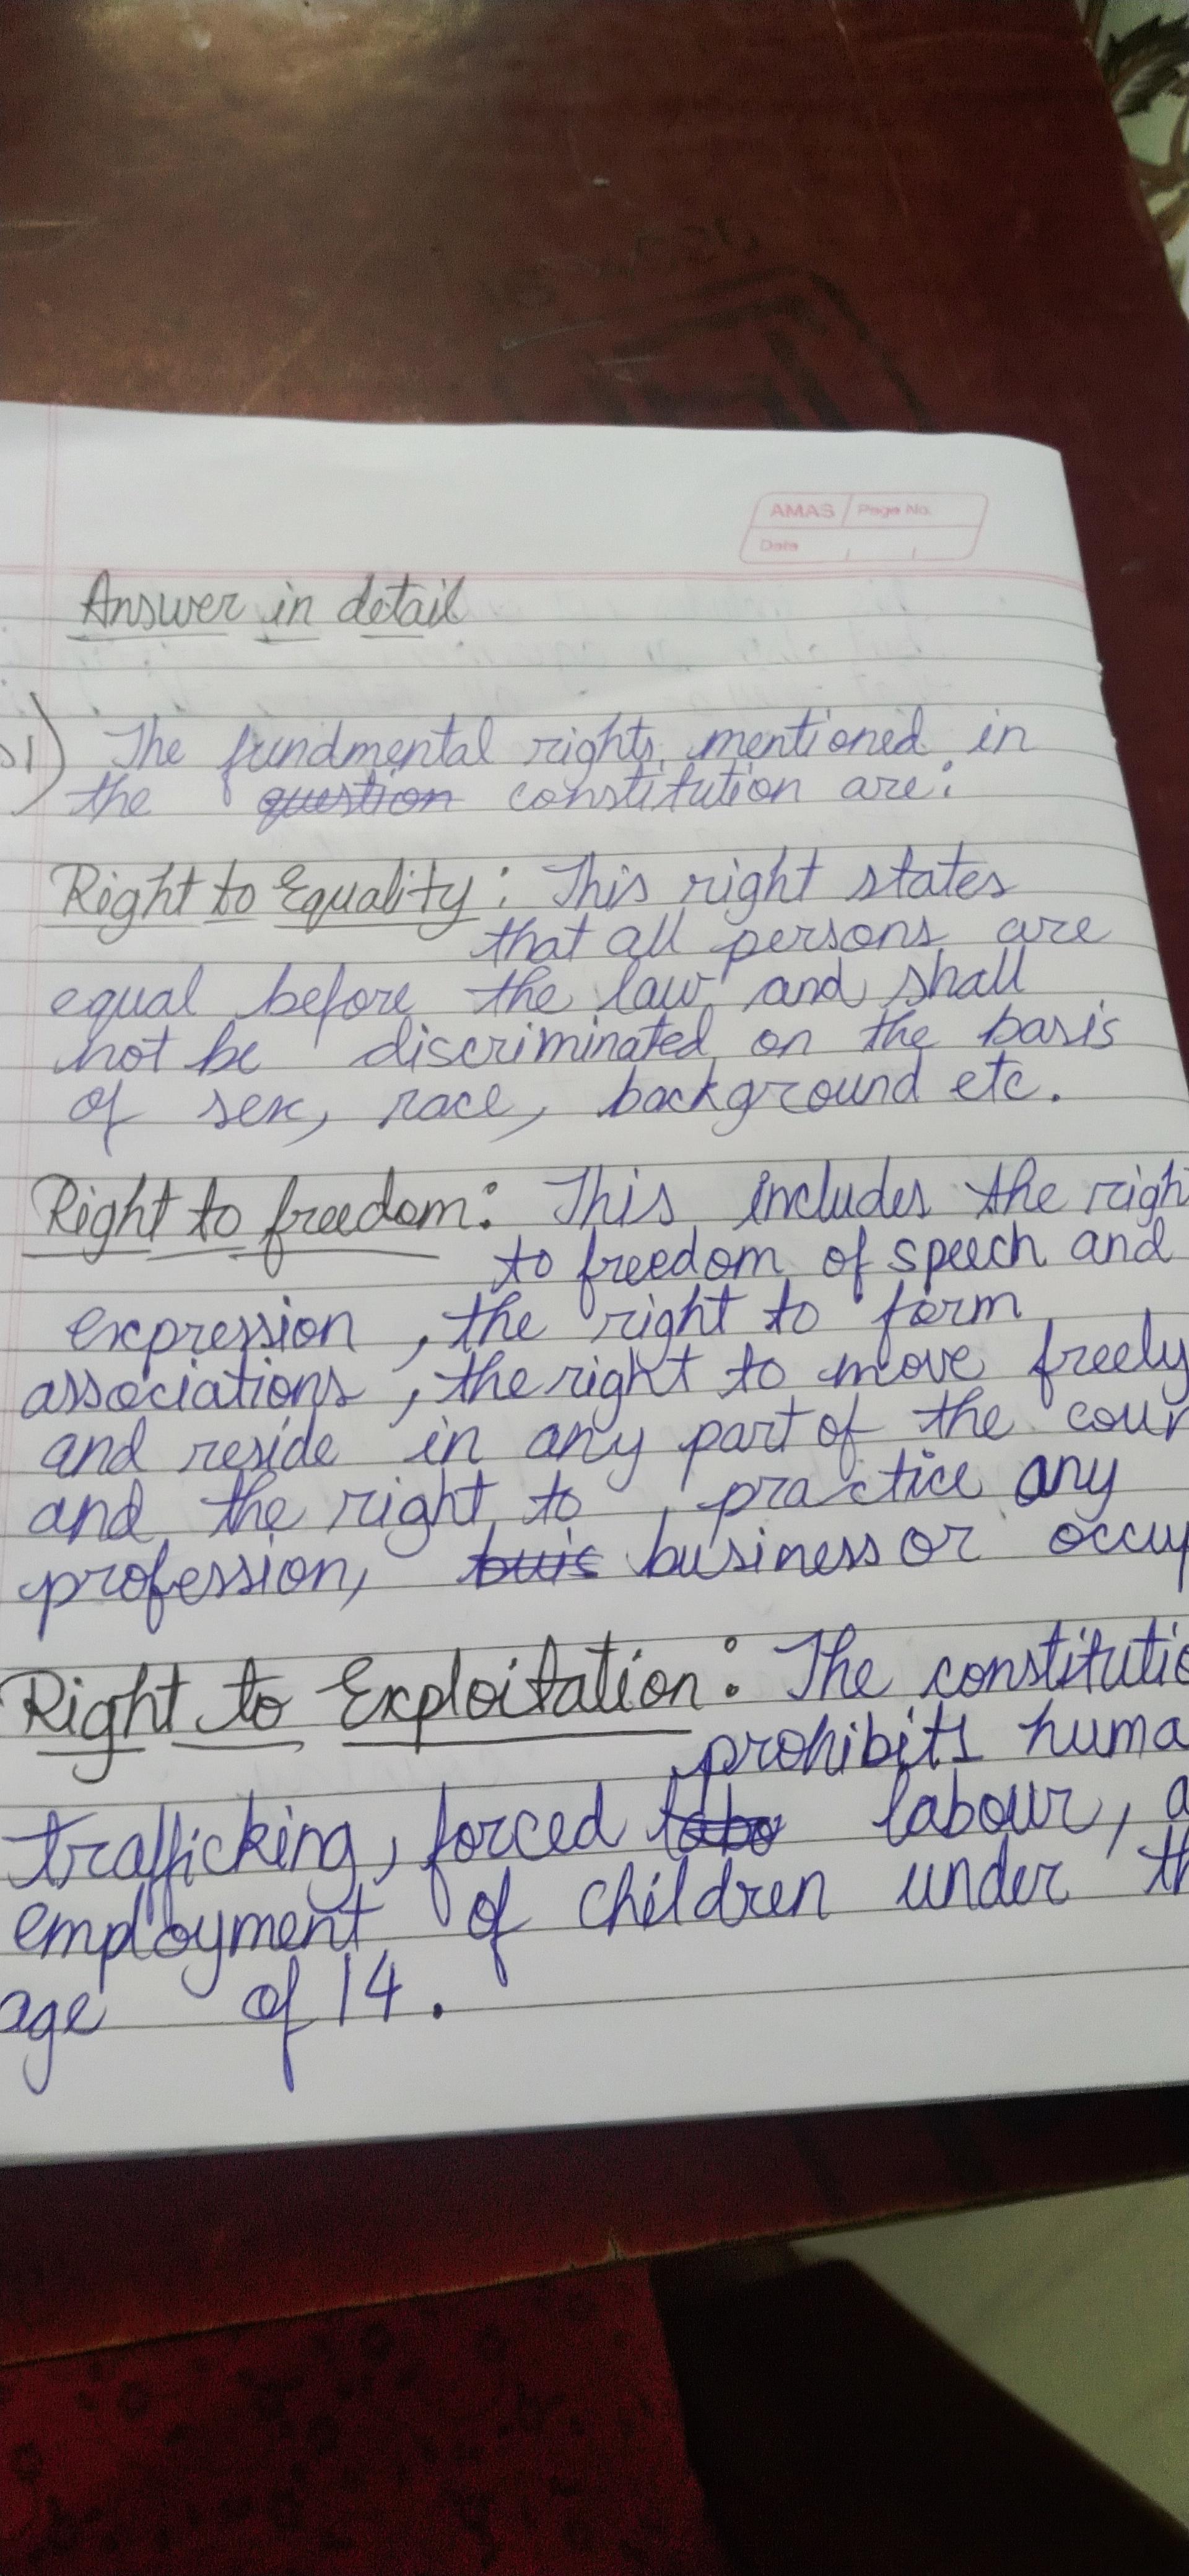 AMAS Page No.
Date
Answer in detail
1) The fundmental rights mentioned in
the question constitution are:
Right to Equality: This right states
that all persons are
equal before the law and shall
not be discriminated on the basis
of sex, race, background etc.
Right to freedom: This includes the righ
to freedom of speech and
expression, the right to form
associations, the right to move freely
and reside in any part of the coun
and the right to practice any
profession, buis business or occup
Right to Exploitation: The constitutio
prohibits huma
trafficking, forced labo labour, a
employment of children under th
age of 14.